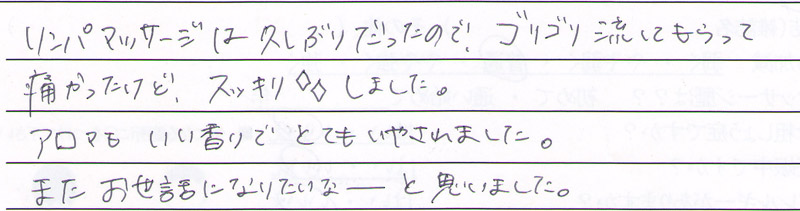 リンパマッサージは久しぶりだったので、ゴリゴリ流してもらって
痛かったけど、スッキリ◇◇しました。
アロマもいい香りでとてもいやされました。
またお世話になりたいなーと思いました。